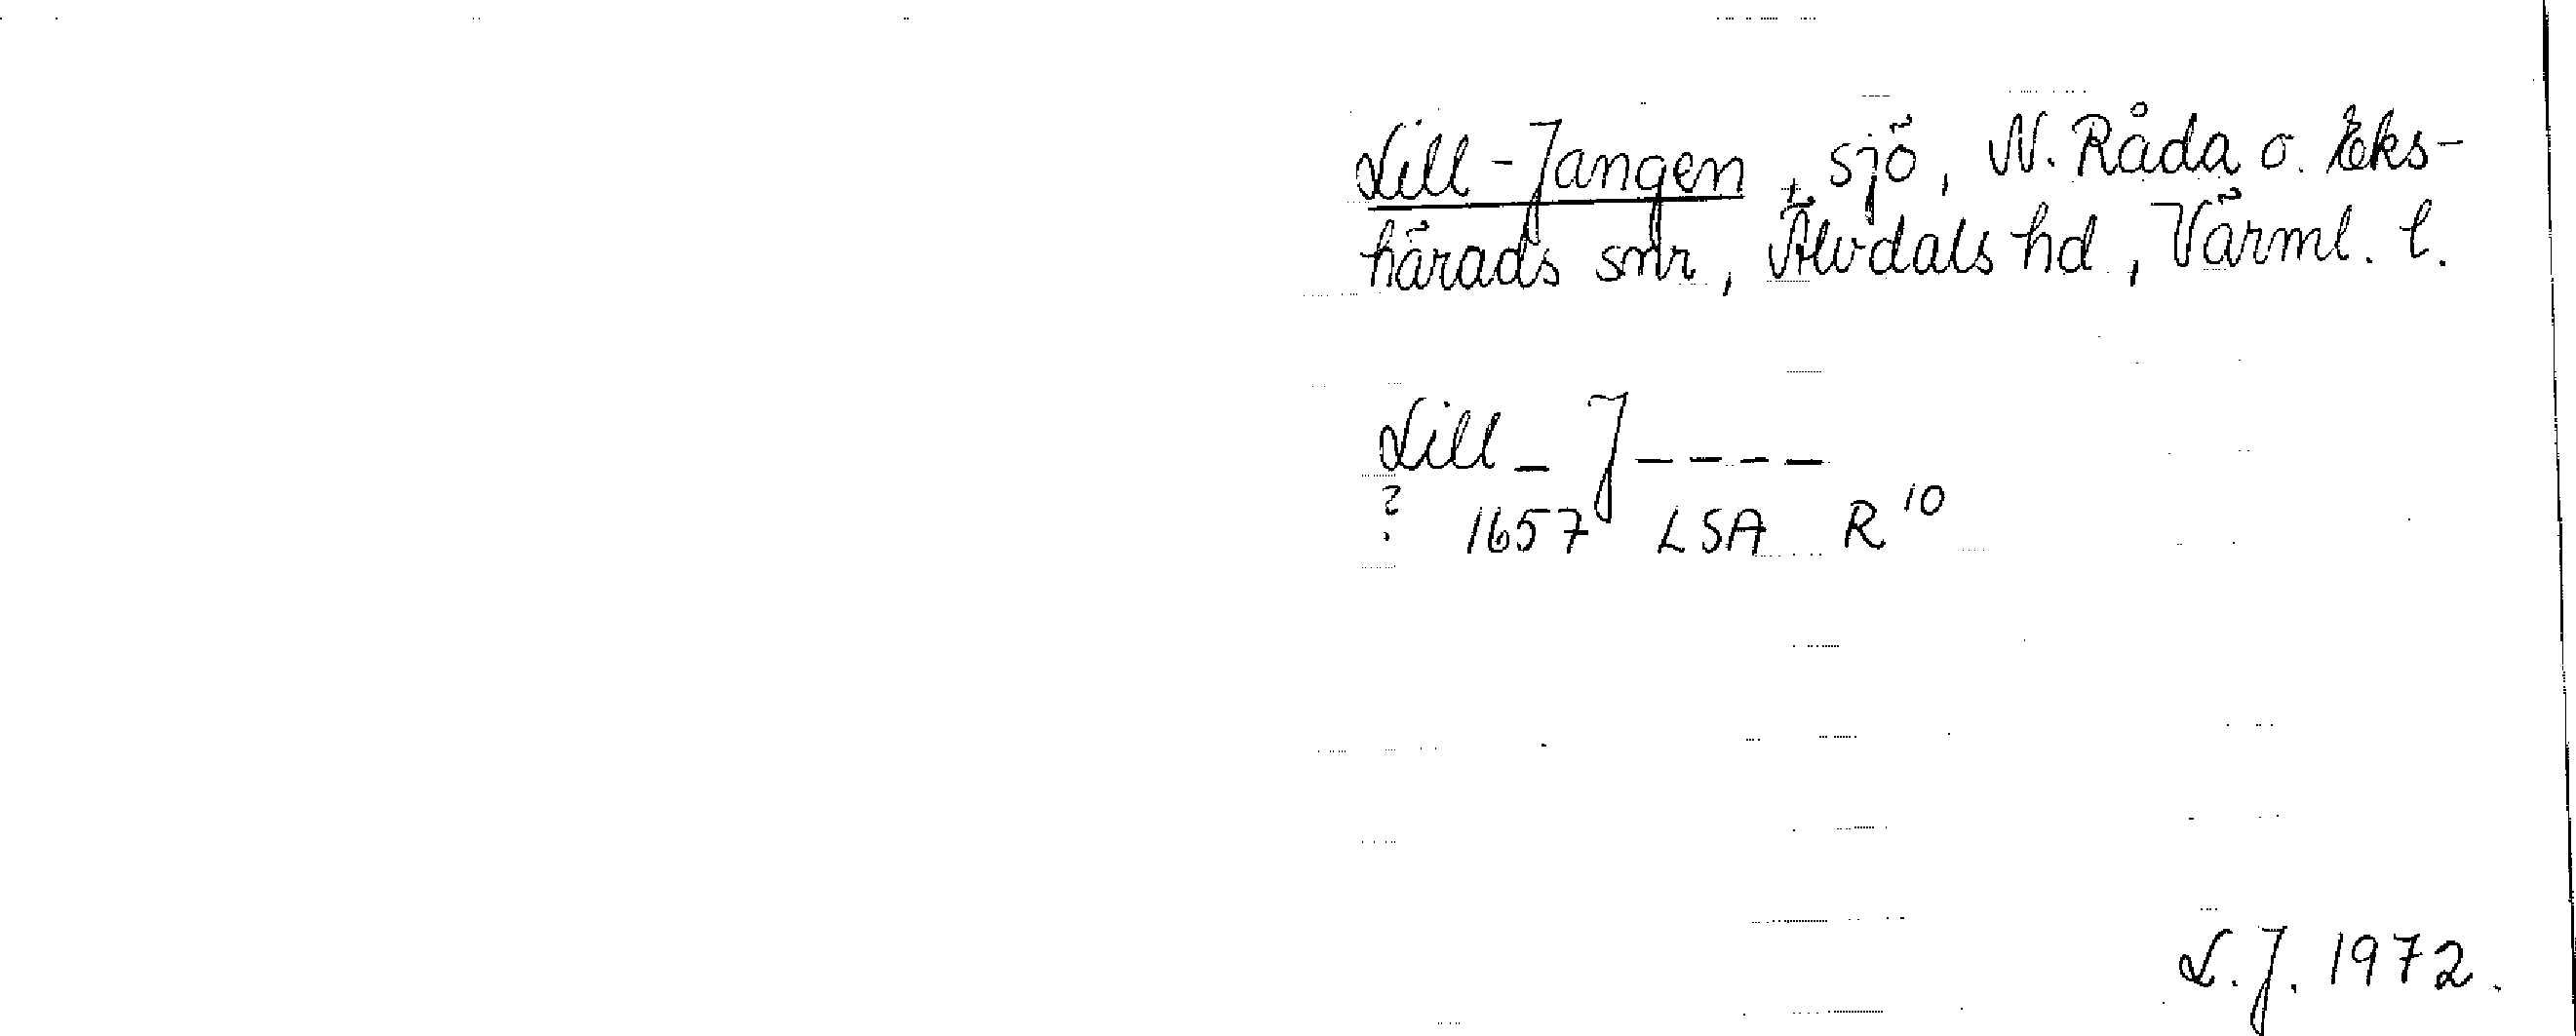 Lill-Jangen, sjö, N. Råda o. Eks-
härads snr, Älvdals hd, Värml. l.
Lill - J - - - -
? 1657 LSA R 10
L.J. 1972.